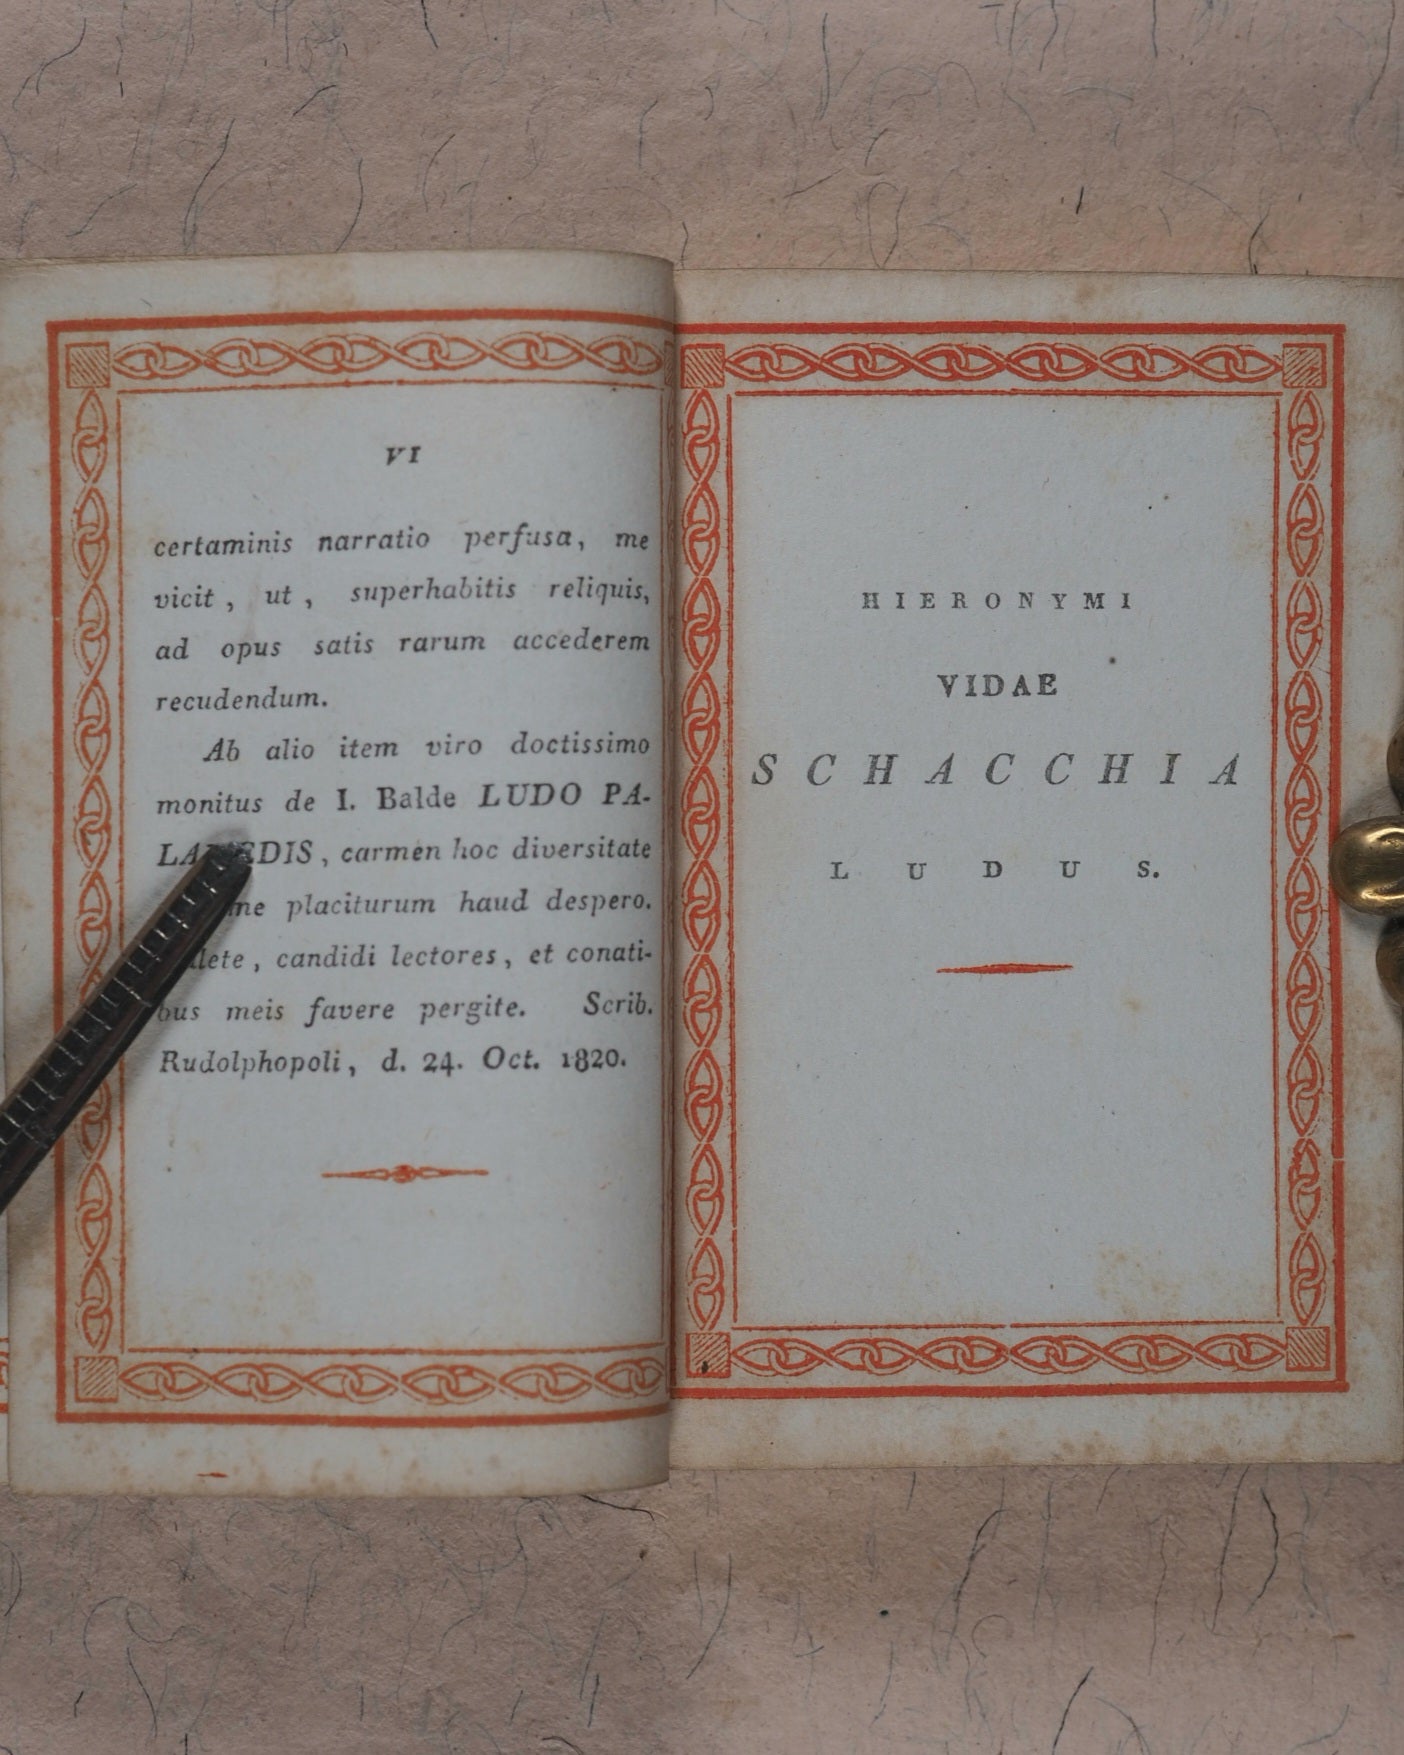 VI
certaminis narratio perfusa, me
vicit, ut, superhabitis reliquis,
ad opus satis rarum accederem
recudendum.
Ab alio item viro doctissimo
monitus de I. Balde LUDO PA-
LAMEDIS, carmen hoc diversitate
placiturum haud despero.
candidi lectores, et conati-
bus meis favere pergite. Scrib.
Rudolphopoli, d. 24. Oct. 1820.
HIERONYMI
VIDAE
SCHACCHIA
LUDUS.